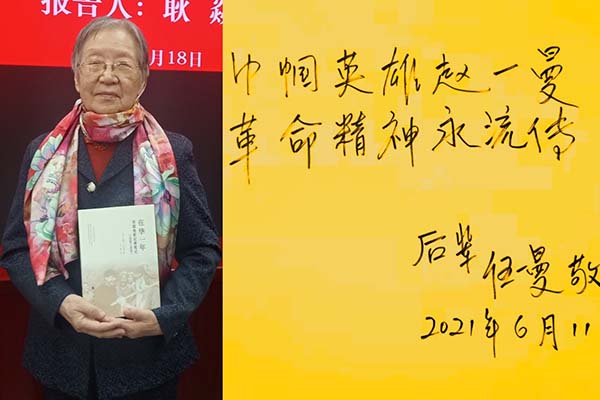 报告人：耿
月18日
在华一年
巾帼英雄赵一曼
革命精神永流传
后辈 任一曼 敬
2021年6月11